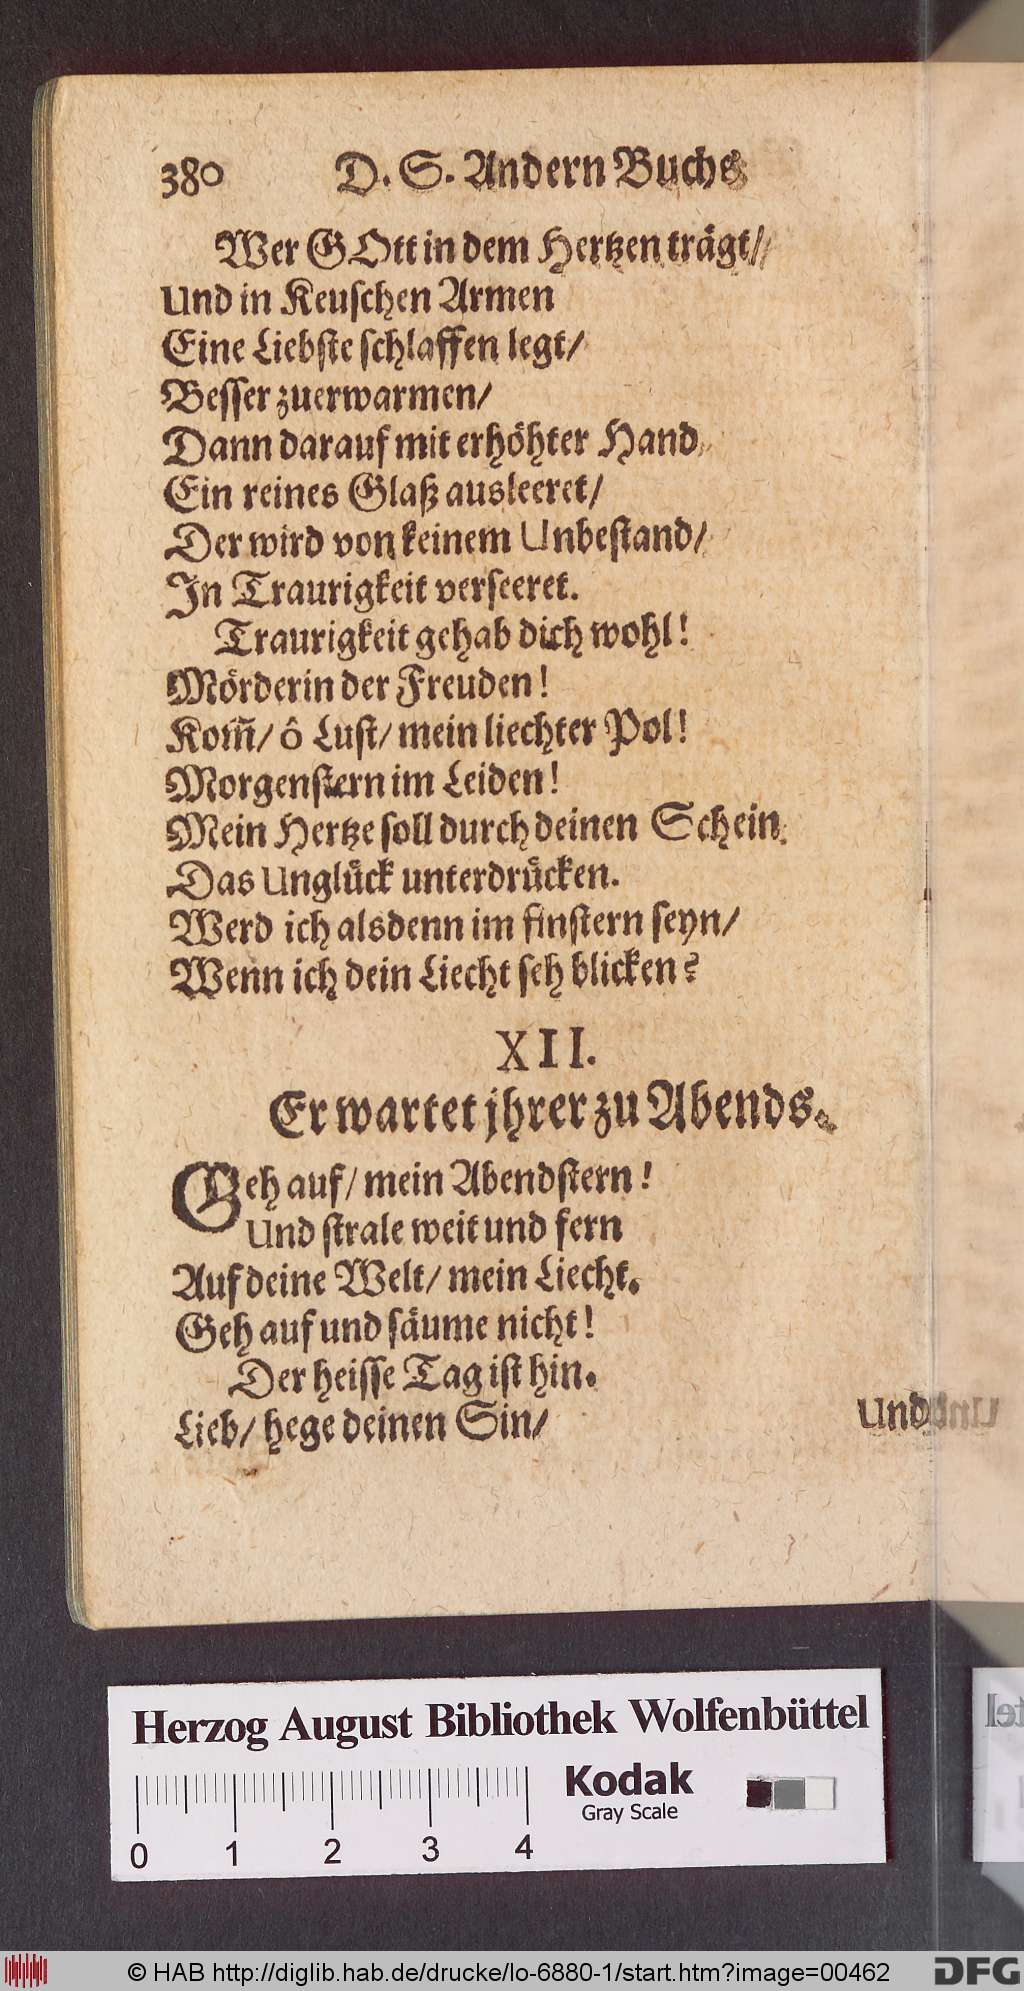 380 D. S. Andern Buchs
Wer GOtt in dem Hertzen trägt/
Und in Keuschen Armen
Eine Liebste schlaffen legt/
Besser zuerwarmen/
Dann darauf mit erhöhter Hand
Ein reines Glaß ausleeret/
Der wird von keinem Unbestand/
In Traurigkeit verseeret.
Traurigkeit gehab dich wohl!
Mörderin der Freuden!
Kom̃/ ô Lust/ mein liechter Pol!
Morgenstern im Leiden!
Mein Hertze soll durch deinen Schein
Das Unglück unterdrücken.
Werd ich alsdenn im finstern seyn/
Wenn ich dein Liecht seh blicken?
XII.
Er wartet jhrer zu Abends.
Geh auf/ mein Abendstern!
Und strale weit und fern
Auf deine Welt/ mein Liecht.
Geh auf und säume nicht!
Der heisse Tag ist hin.
Lieb/ hege deinen Sin/
Und
Herzog August Bibliothek Wolfenbüttel
Kodak
Gray Scale
0 1 2 3 4
© HAB http://diglib.hab.de/drucke/lo-6880-1/start.htm?image=00462
DFG